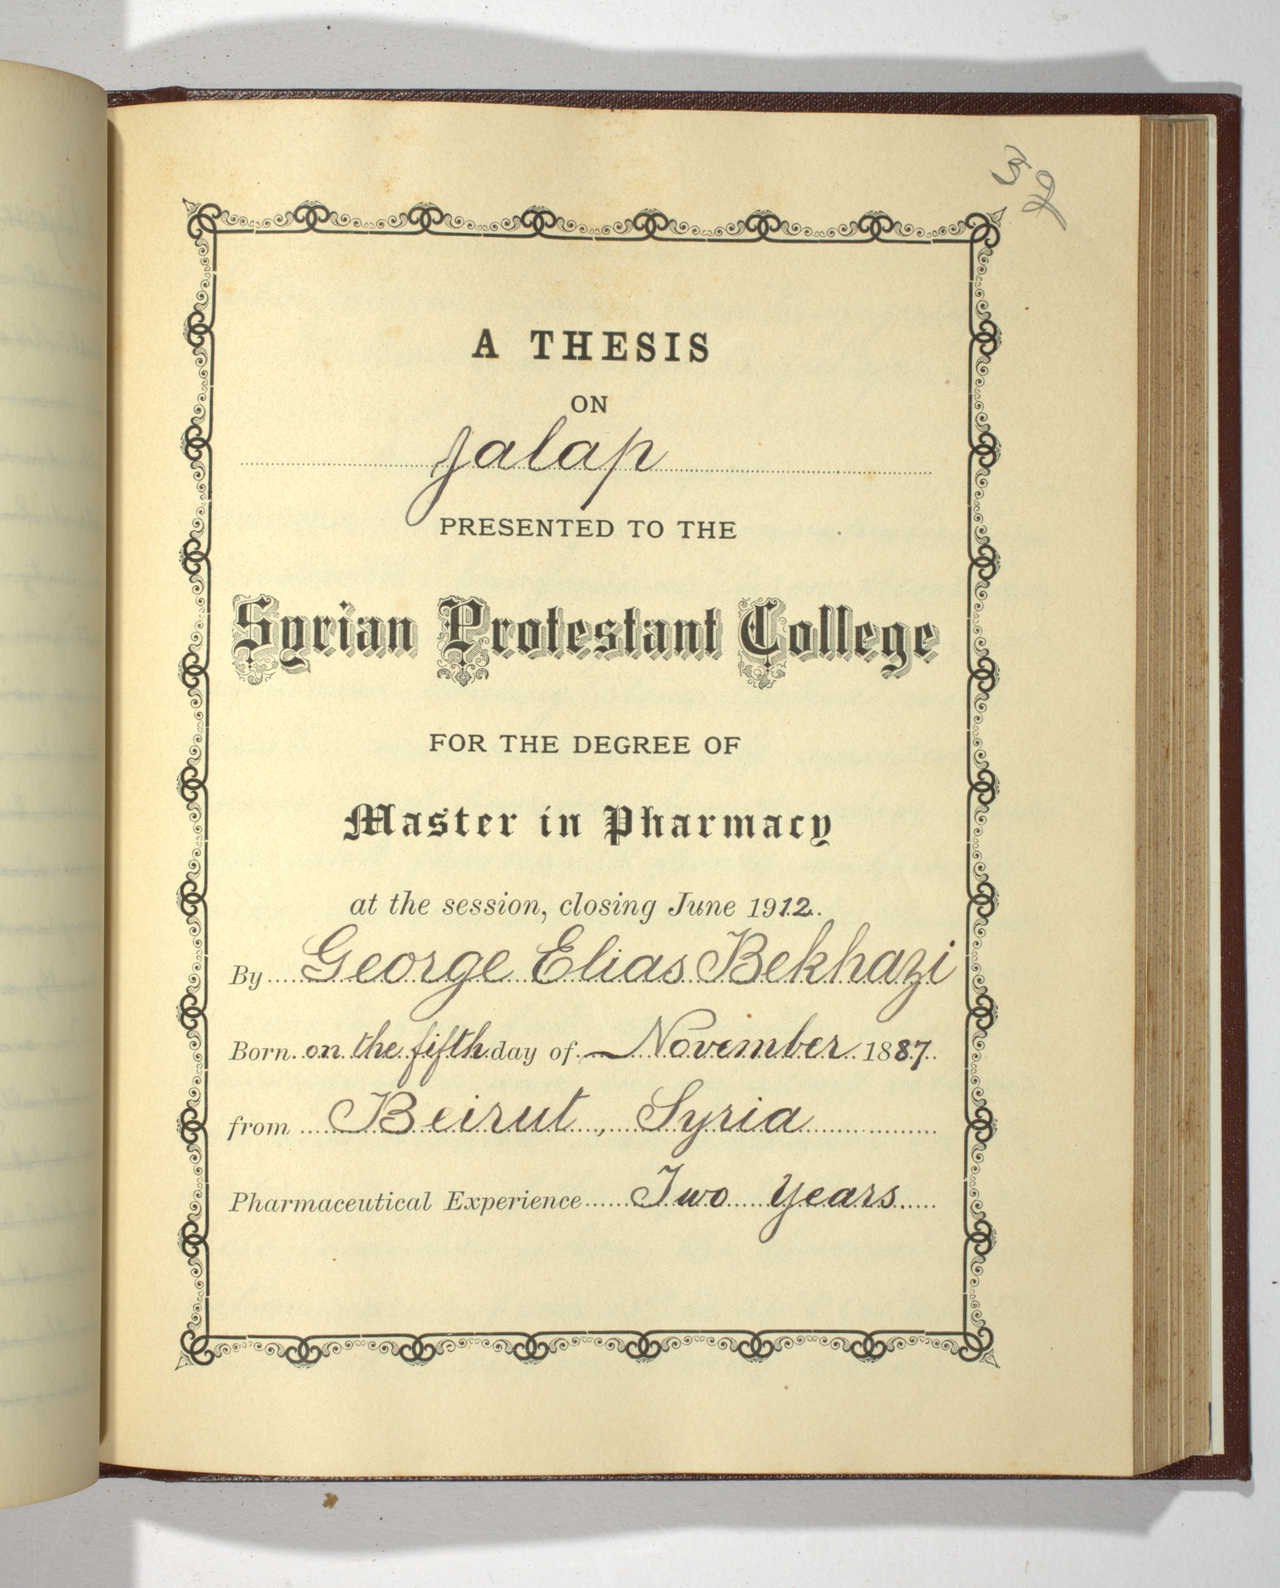 32
A THESIS
ON
Jalap
PRESENTED TO THE
Syrian Protestant College
FOR THE DEGREE OF
Master in Pharmacy
at the session, closing June 1912.
By George Elias Bekhazi
Born on the fifth day of November 1887.
from Beirut, Syria
Pharmaceutical Experience Two years